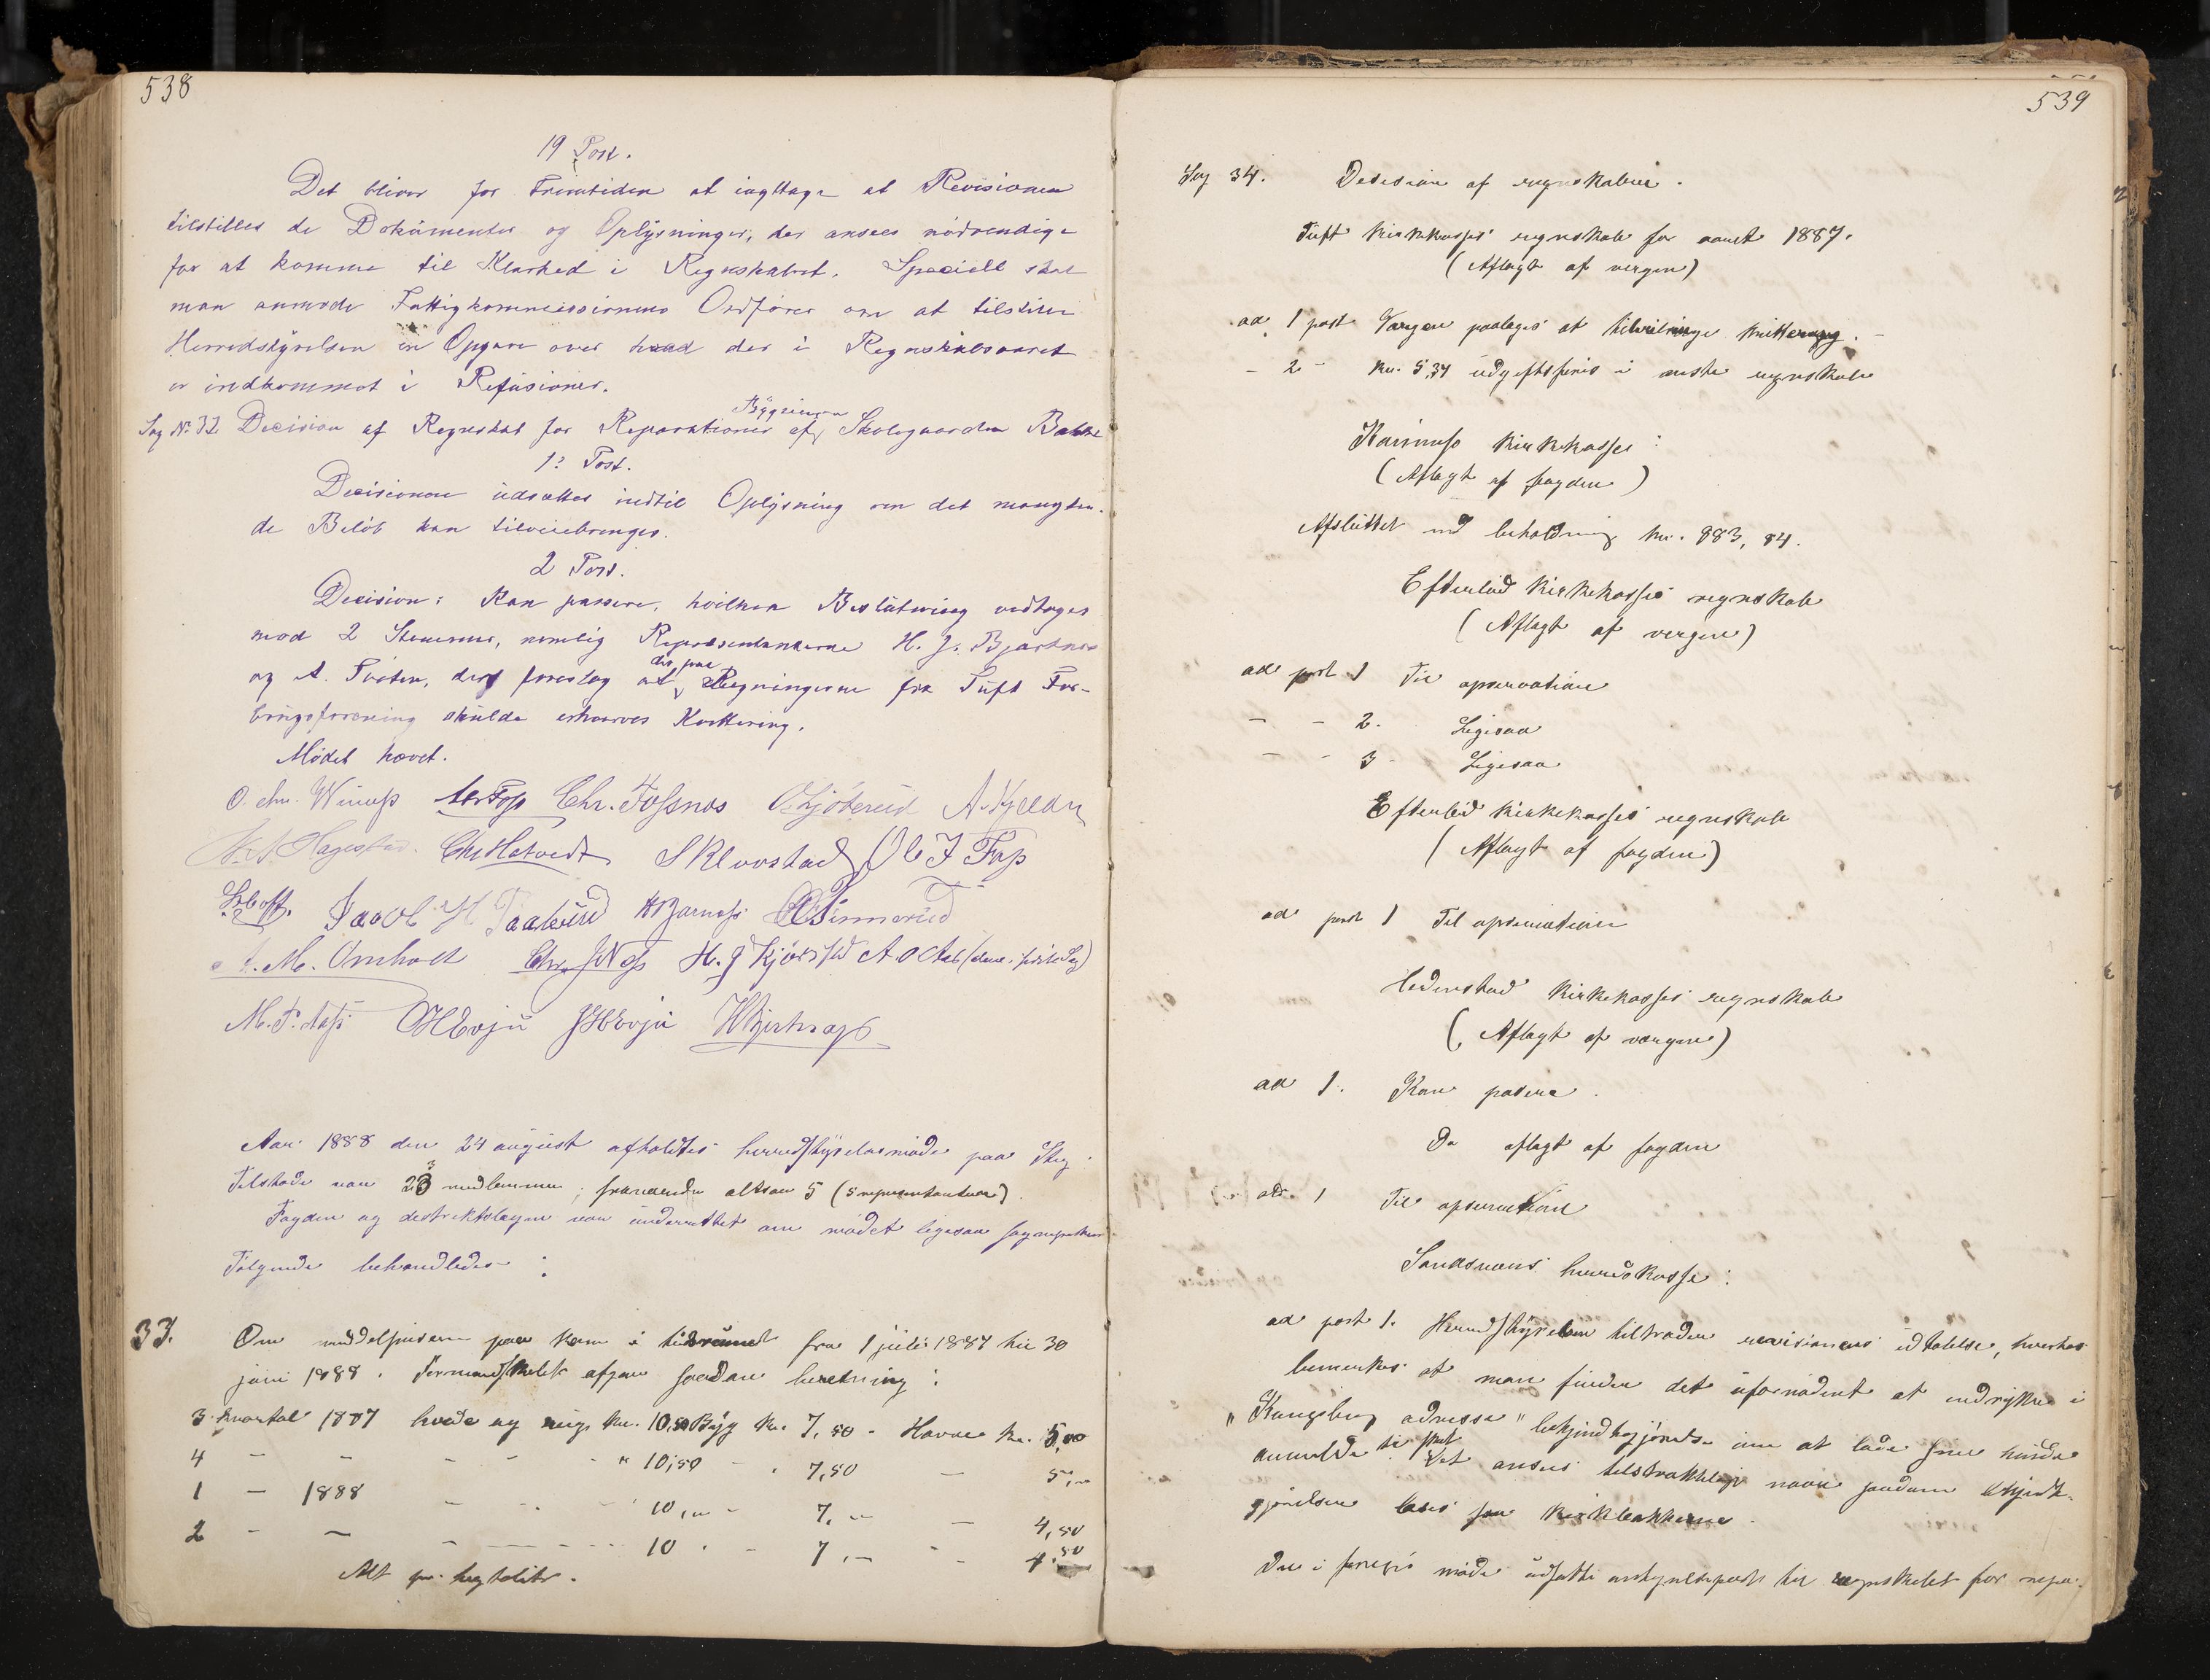 538
19 Post.
Det bliver for Fremtiden at iagttage at Revisionen
tilstilles de Dokumenter og Oplysninger, der ansees nödvendige
for at komme til Klarhed i Regnskabet. Specielt skal
man anmode Fattigkommissionens Ordförer om at tilstille
Herredstyrelsen en Opgave over hvad der i Regnskabsaaret
er indkommet i Refusioner.
Sag No 32 Decision af Regnskab for Reparationer af Bygningen Skolegaarden Bakke
1ste Post.
Decisionen udsættes indtil Oplysning om det manglen-
de Belöb kan tilveiebringes.
2 Post.
Decision: Kan passere, hvilken Beslutning vedtoges
mod 2 Stemmer, nemlig Repræsentanterne H. J. Bjørtnes
og A. Tveten, der foreslog at der paa Regningerne fra Tuft For-
brugsforening skulde erhverves Kvittering.
Mödet hævet.
O. Chr. Chr. Fossnes A. Kjelde
Hagestad. Chr Hotvedt S Klovstad Ole J Foss
Jacob H. Taaterud
A. M. Omholt Chr. J Næss H. J Kjörstad A. O Aas
M. F. Næss OH Evju JH Evju
Aar 1888 den 24 august afholdtes herredstyrelsesmöde paa Steg.
Tilstede var 23 medlemmer, fraværende altsaa 5 (5 representanter).
Fogden og destriktslægen var underrettet om mödet ligesaa
Fölgende behandledes:
33. Om middelprisen paa korn i tidsrummet fra 1 juli 1887 til 30
juni 1888. Formandskabet afgav saadan beretning:
3. kvartal 1887 hvede og rug kr. 10,50 Byg kr. 7,50 - Havre kr. 5,00
4 - - - - " 10,50 - . 7,50 - 5,-
1 - 1888 - - - 10,- - 7,- - 4,50
2 - - - - - 10 . - 7,- - 4,50
Alt pr. hektoliter.
539
Sag 34. Desision af regnskaber.
Tuft kirkekasses regnskab for aaret 1887.
(Aflagt af vergen)
ad 1 post Værgen paalægges at tilveiebringe kvittering. -
- 2 - Kr. 5,34 udgiftsføres i næste regnskab
Komnes kirkekasse:
(Aflagt af fogden)
Afsluttet med beholdning kr. 883,84.
Efteløt kirkekasses regnskab
(Aflagt af vergen)
ad post 1 Til opservation
- - 2. Ligesaa
- - 3 - Ligesaa
Efteløt kirkekasses regnskab
(Aflagt af fogden)
ad post 1 Til opservation
kirkekasses regnskab
(Aflagt af værgen)
ad 1. Kan pasere.
Do aflagt af fogden
ad 1 Til opservation
Sandsværs herredskasse:
ad post 1. Herredstyrelsen tiltræder revisionens udtalelse, hvorhos
bemærkes at man finder det ufornødent at indrykke i
"Kongsberg adresse" bekjendtgjørelse om at lade sine hunde
anmelde til skat. Det ansees tilstrækkeligt naar saadan bekjendt-
gjørelse læses fra kirkebakkerne.
Den i forrige møde udsatte antegnelsespost til regnskabet for repa-